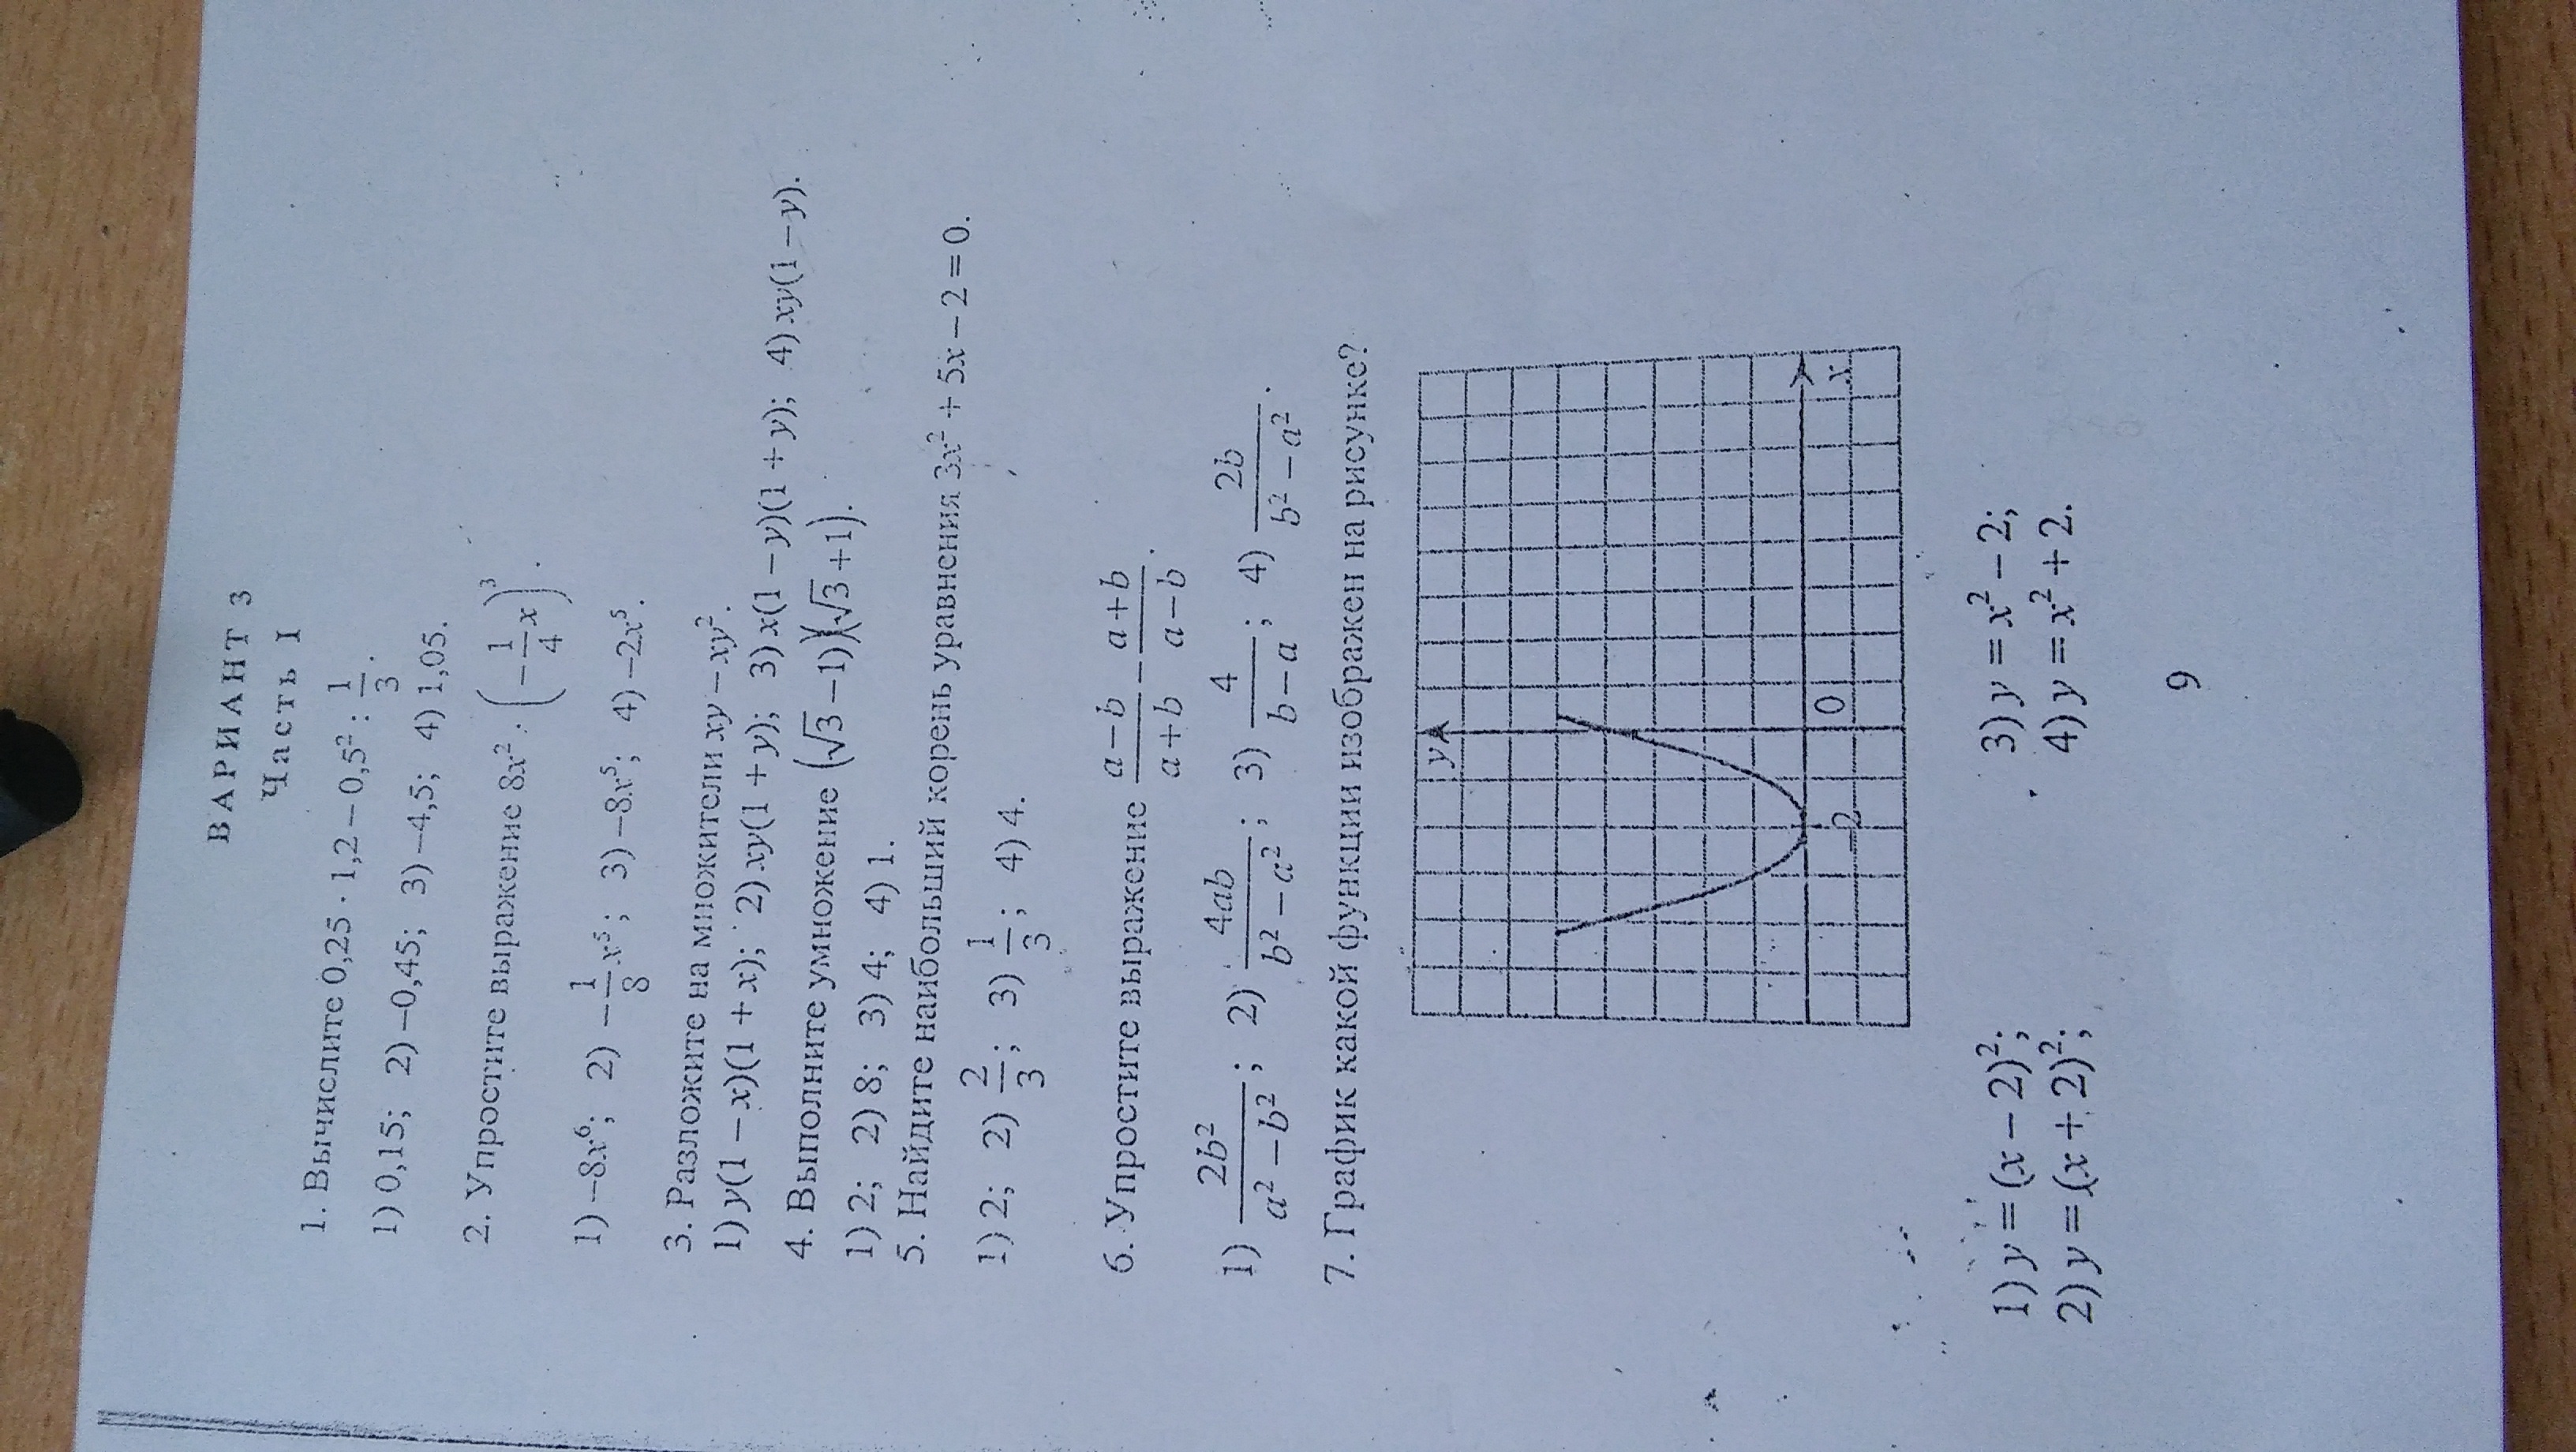 ВАРИАНТ 3
Часть 1
1. Вычислите 0,25 · 1,2 − 0,5² : 1/3.
1) 0,15; 2) −0,45; 3) −4,5; 4) 1,05.
2. Упростите выражение 8x² · (−1/4 x)³.
1) −8x⁶; 2) −1/8 x⁵; 3) −8x⁵; 4) −2x⁵.
3. Разложите на множители xy − xy².
1) y(1 − x)(1 + x); 2) xy(1 + y); 3) x(1 − y)(1 + y); 4) xy(1 − y).
4. Выполните умножение (√3 − 1)(√3 + 1).
1) 2; 2) 8; 3) 4; 4) 1.
5. Найдите наибольший корень уравнения 3x² + 5x − 2 = 0.
1) 2; 2) 2/3; 3) 1/3; 4) 4.
6. Упростите выражение (a − b)/(a + b) − (a + b)/(a − b).
1) 2b²/(a² − b²); 2) 4ab/(b² − a²); 3) 4/(b − a); 4) 2b/(b² − a²).
7. График какой функции изображен на рисунке?
y
−2 0 x
1) y = (x − 2)²; 3) y = x² − 2;
2) y = (x + 2)²; 4) y = x² + 2.
9